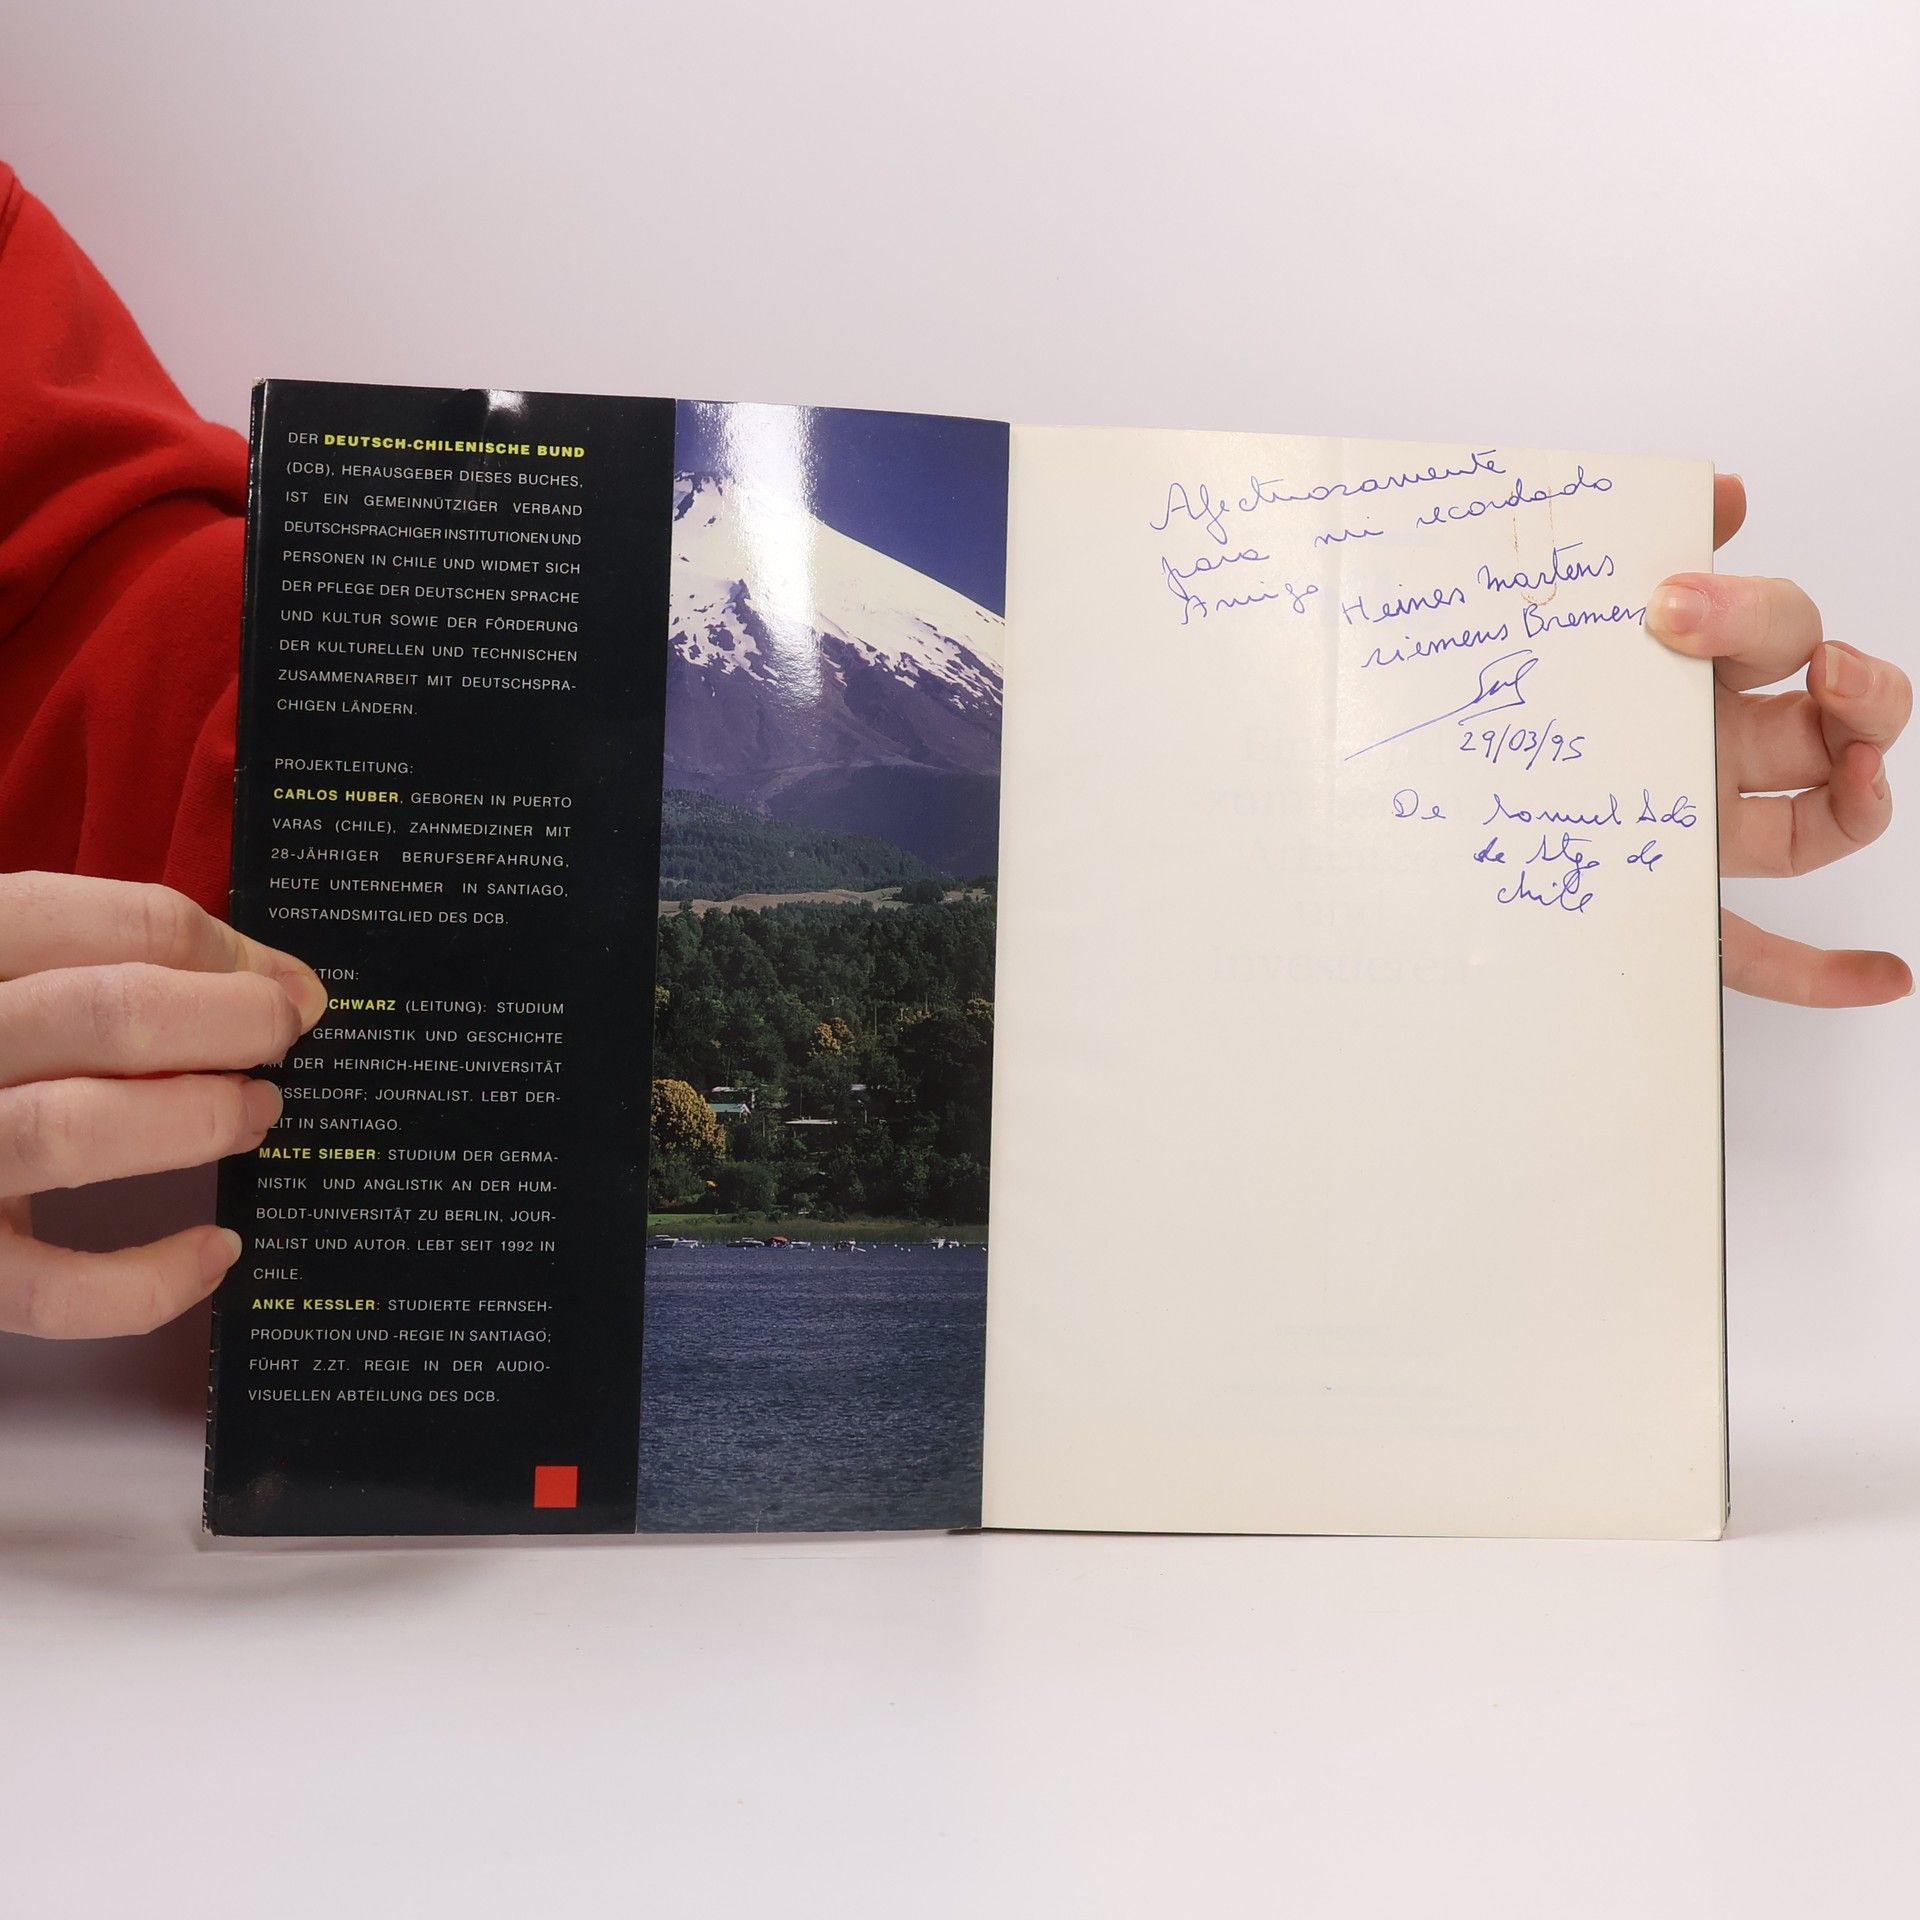 DER DEUTSCH-CHILENISCHE BUND
(DCB), HERAUSGEBER DIESES BUCHES,
IST EIN GEMEINNÜTZIGER VERBAND
DEUTSCHSPRACHIGER INSTITUTIONEN UND
PERSONEN IN CHILE UND WIDMET SICH
DER PFLEGE DER DEUTSCHEN SPRACHE
UND KULTUR SOWIE DER FÖRDERUNG
DER KULTURELLEN UND TECHNISCHEN
ZUSAMMENARBEIT MIT DEUTSCHSPRA-
CHIGEN LÄNDERN.
PROJEKTLEITUNG:
CARLOS HUBER, GEBOREN IN PUERTO
VARAS (CHILE), ZAHNMEDIZINER MIT
28-JÄHRIGER BERUFSERFAHRUNG,
HEUTE UNTERNEHMER IN SANTIAGO,
VORSTANDSMITGLIED DES DCB.
KTION:
CHWARZ (LEITUNG): STUDIUM
GERMANISTIK UND GESCHICHTE
AN DER HEINRICH-HEINE-UNIVERSITÄT
SSELDORF; JOURNALIST. LEBT DER-
ZEIT IN SANTIAGO.
MALTE SIEBER: STUDIUM DER GERMA-
NISTIK UND ANGLISTIK AN DER HUM-
BOLDT-UNIVERSITÄT ZU BERLIN, JOUR-
NALIST UND AUTOR. LEBT SEIT 1992 IN
CHILE.
ANKE KESSLER: STUDIERTE FERNSEH-
PRODUKTION UND -REGIE IN SANTIAGO;
FÜHRT Z.ZT. REGIE IN DER AUDIO-
VISUELLEN ABTEILUNG DES DCB.
Afectuosamente
para mi recordado
Amigo Heines Martens
siemens Bremen
29/03/95
De Samuel Soto
de Stgo de
chile